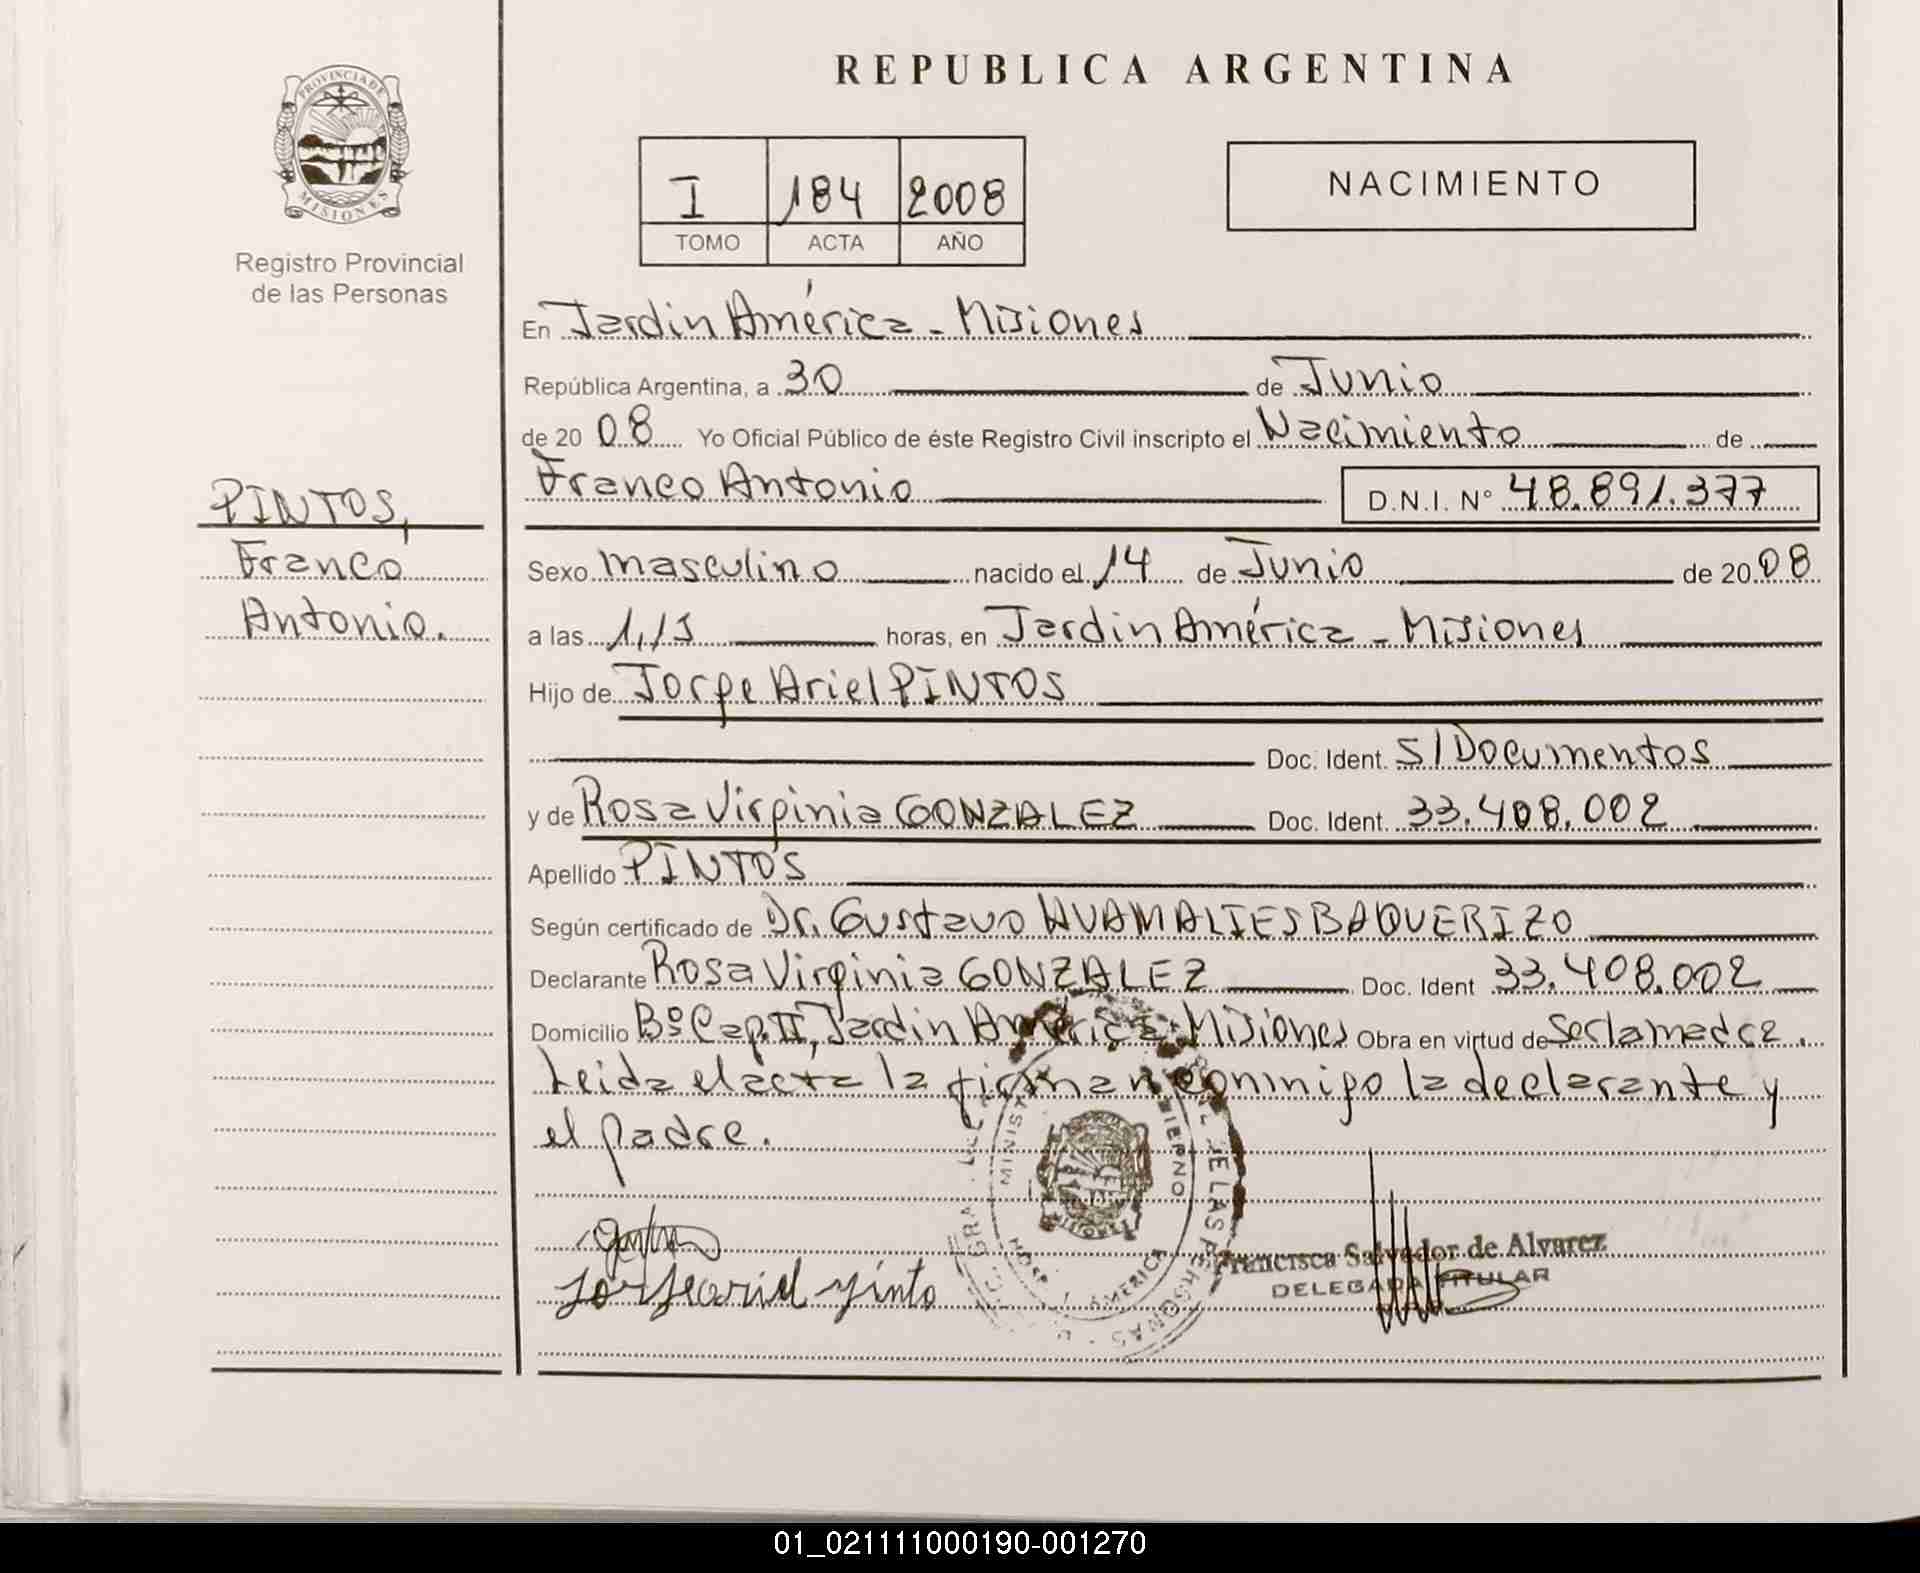 REPUBLICA ARGENTINA
PROVINCIA DE
MISIONES
Registro Provincial
de las Personas
I 184 2008
TOMO ACTA AÑO
NACIMIENTO
En Jardin América - Misiones
República Argentina, a 30 de Junio
de 2008 Yo Oficial Público de éste Registro Civil inscripto el Nacimiento de
Franco Antonio D.N.I. N° 48.891.377
PINTOS,
Franco
Antonio.
Sexo masculino nacido el 14 de Junio de 2008
a las horas, en Jardin América - Misiones
Hijo de Jorge Ariel PINTOS
Doc. Ident. S/Documentos
y de Rosa Virginia GONZALEZ Doc. Ident. 33.408.002
Apellido PINTOS
Según certificado de Dr. Gustavo HUAMALIES BAQUERIZO
Declarante Rosa Virginia GONZALEZ Doc. Ident 33.408.002
Domicilio Bº Cap. II, Jardin América Misiones Obra en virtud de
Leida el acta la firman conmigo la declarante y
el padre.
Jorge ariel pinto
Francisca Salvador de Alvarez
DELEGADA TITULAR
01_021111000190-001270